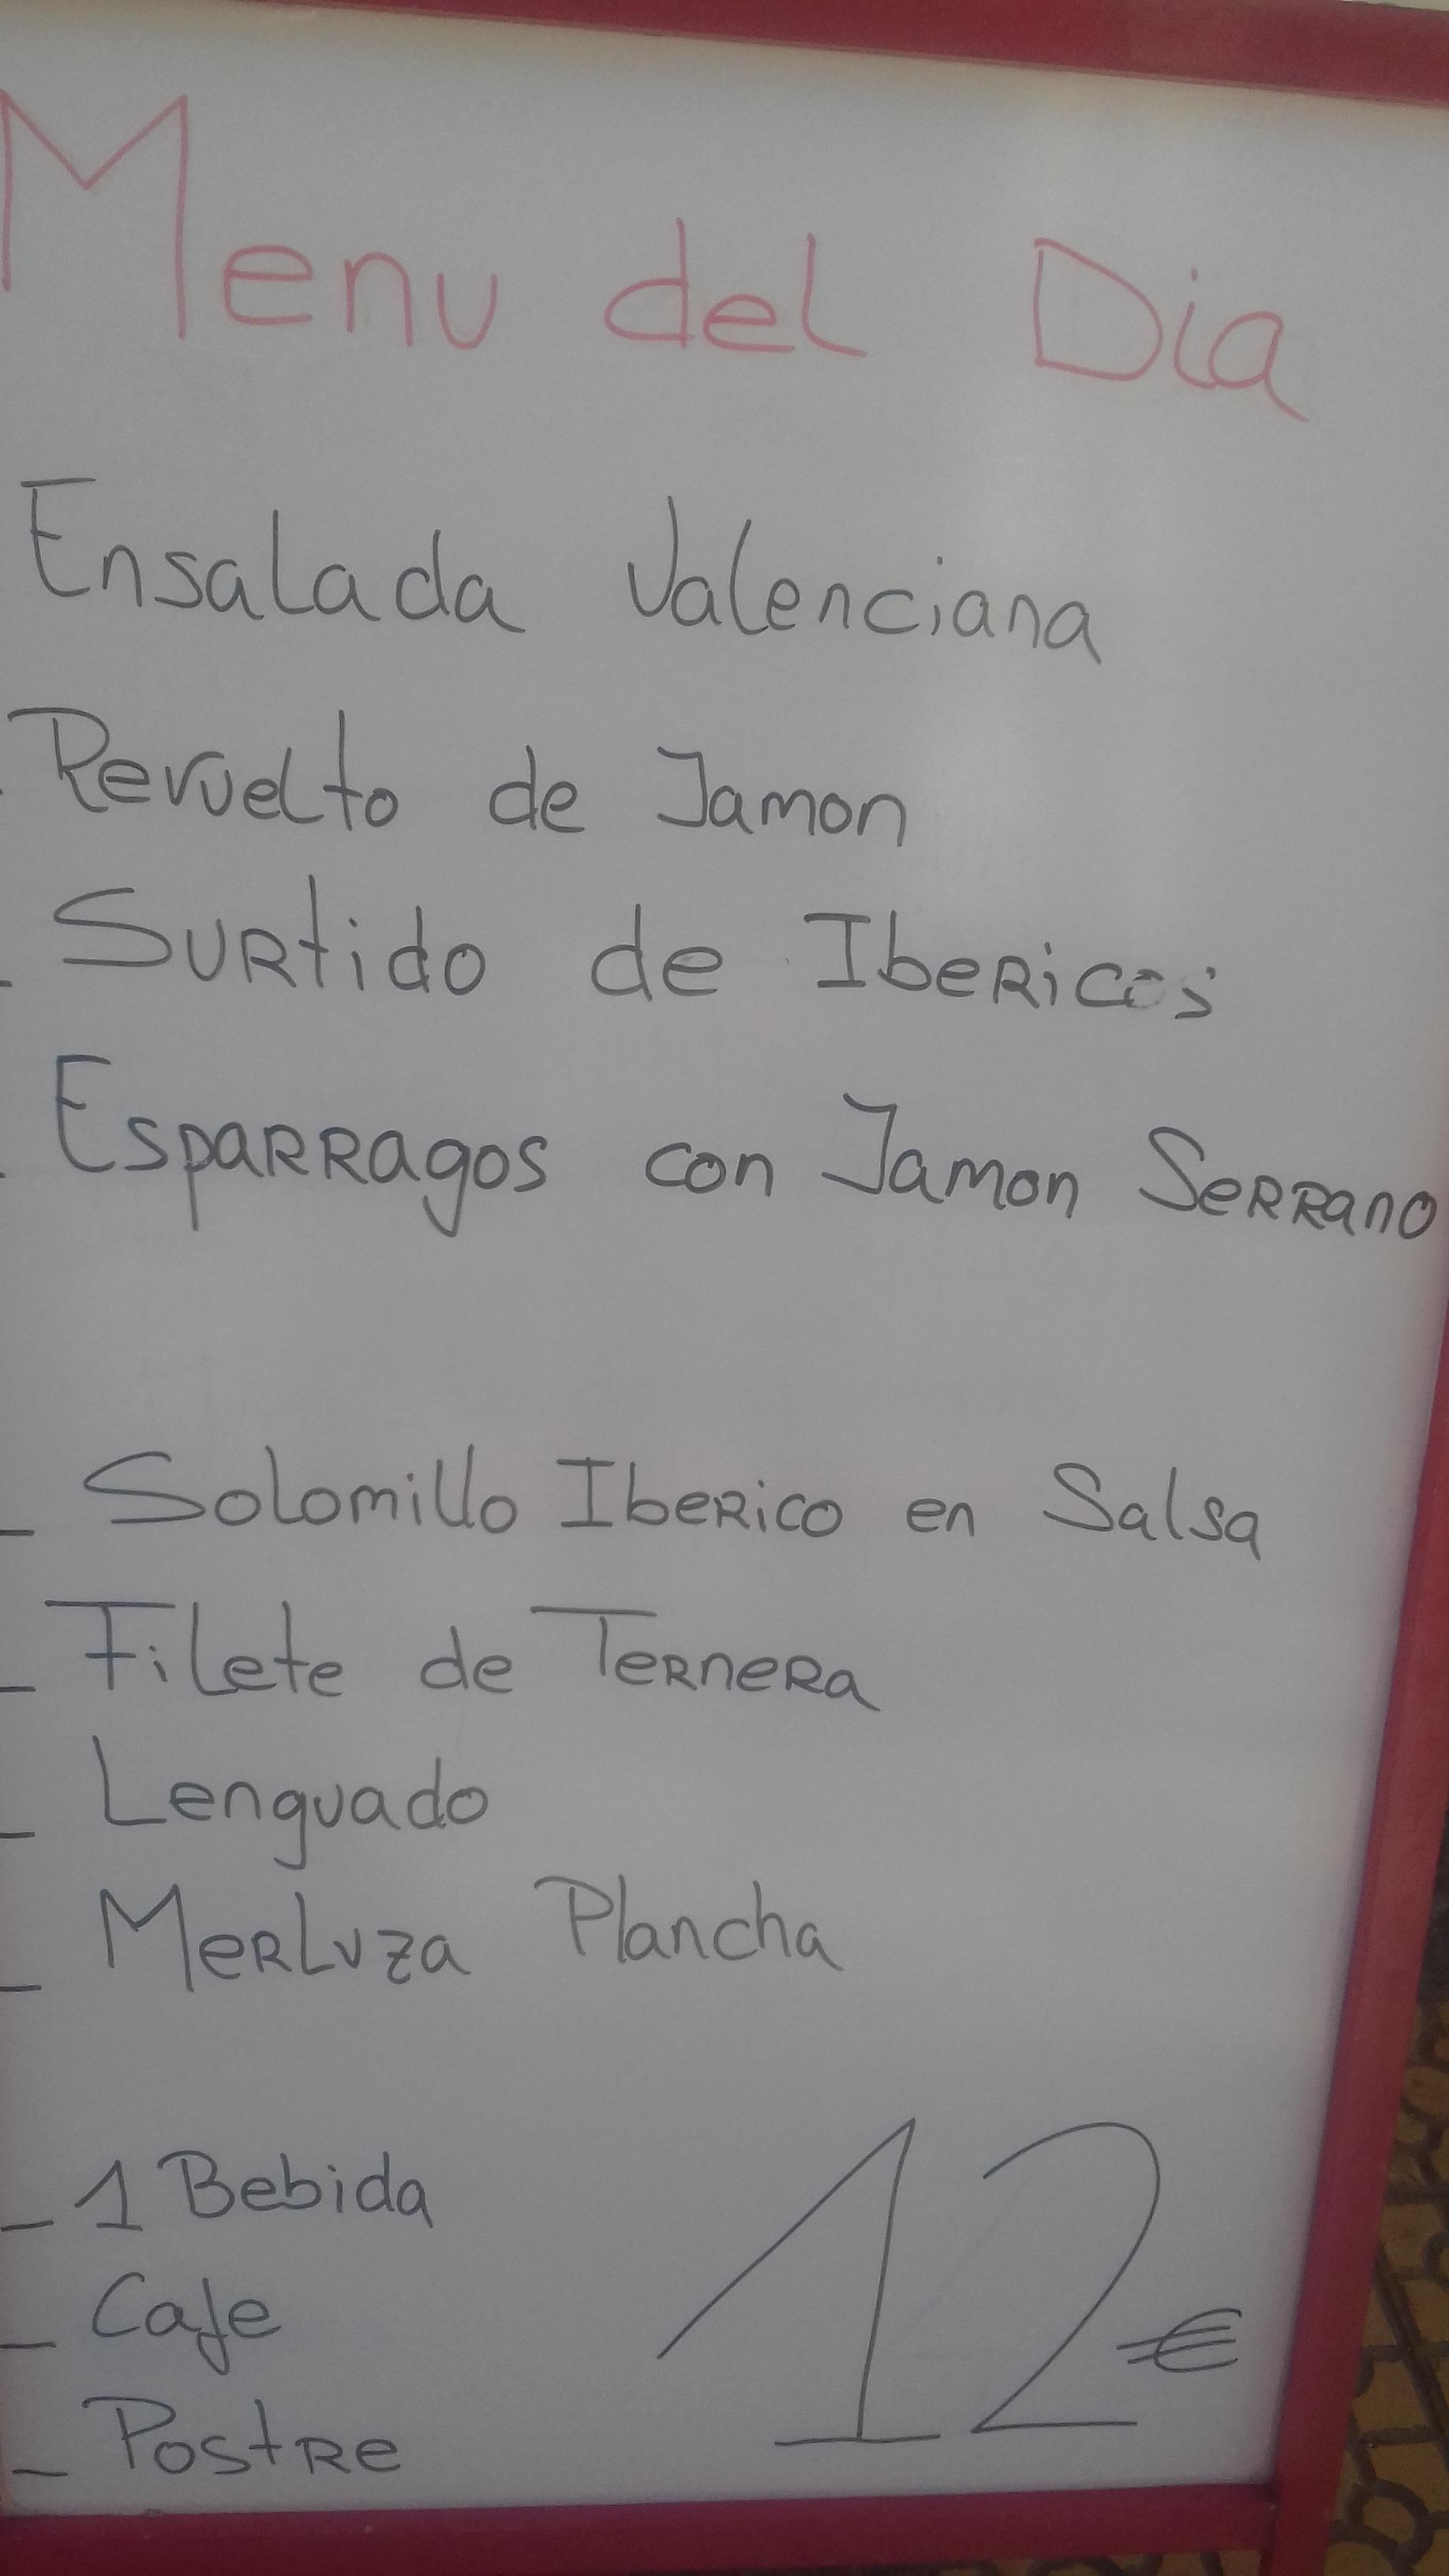 Menu del Dia
Ensalada Valenciana
- Revuelto de Jamon
- Surtido de Ibericos
- Esparragos con Jamon Serrano
- Solomillo Iberico en Salsa
- Filete de Ternera
- Lenguado
- Merluza Plancha
- 1 Bebida
- Cafe
- Postre
12€